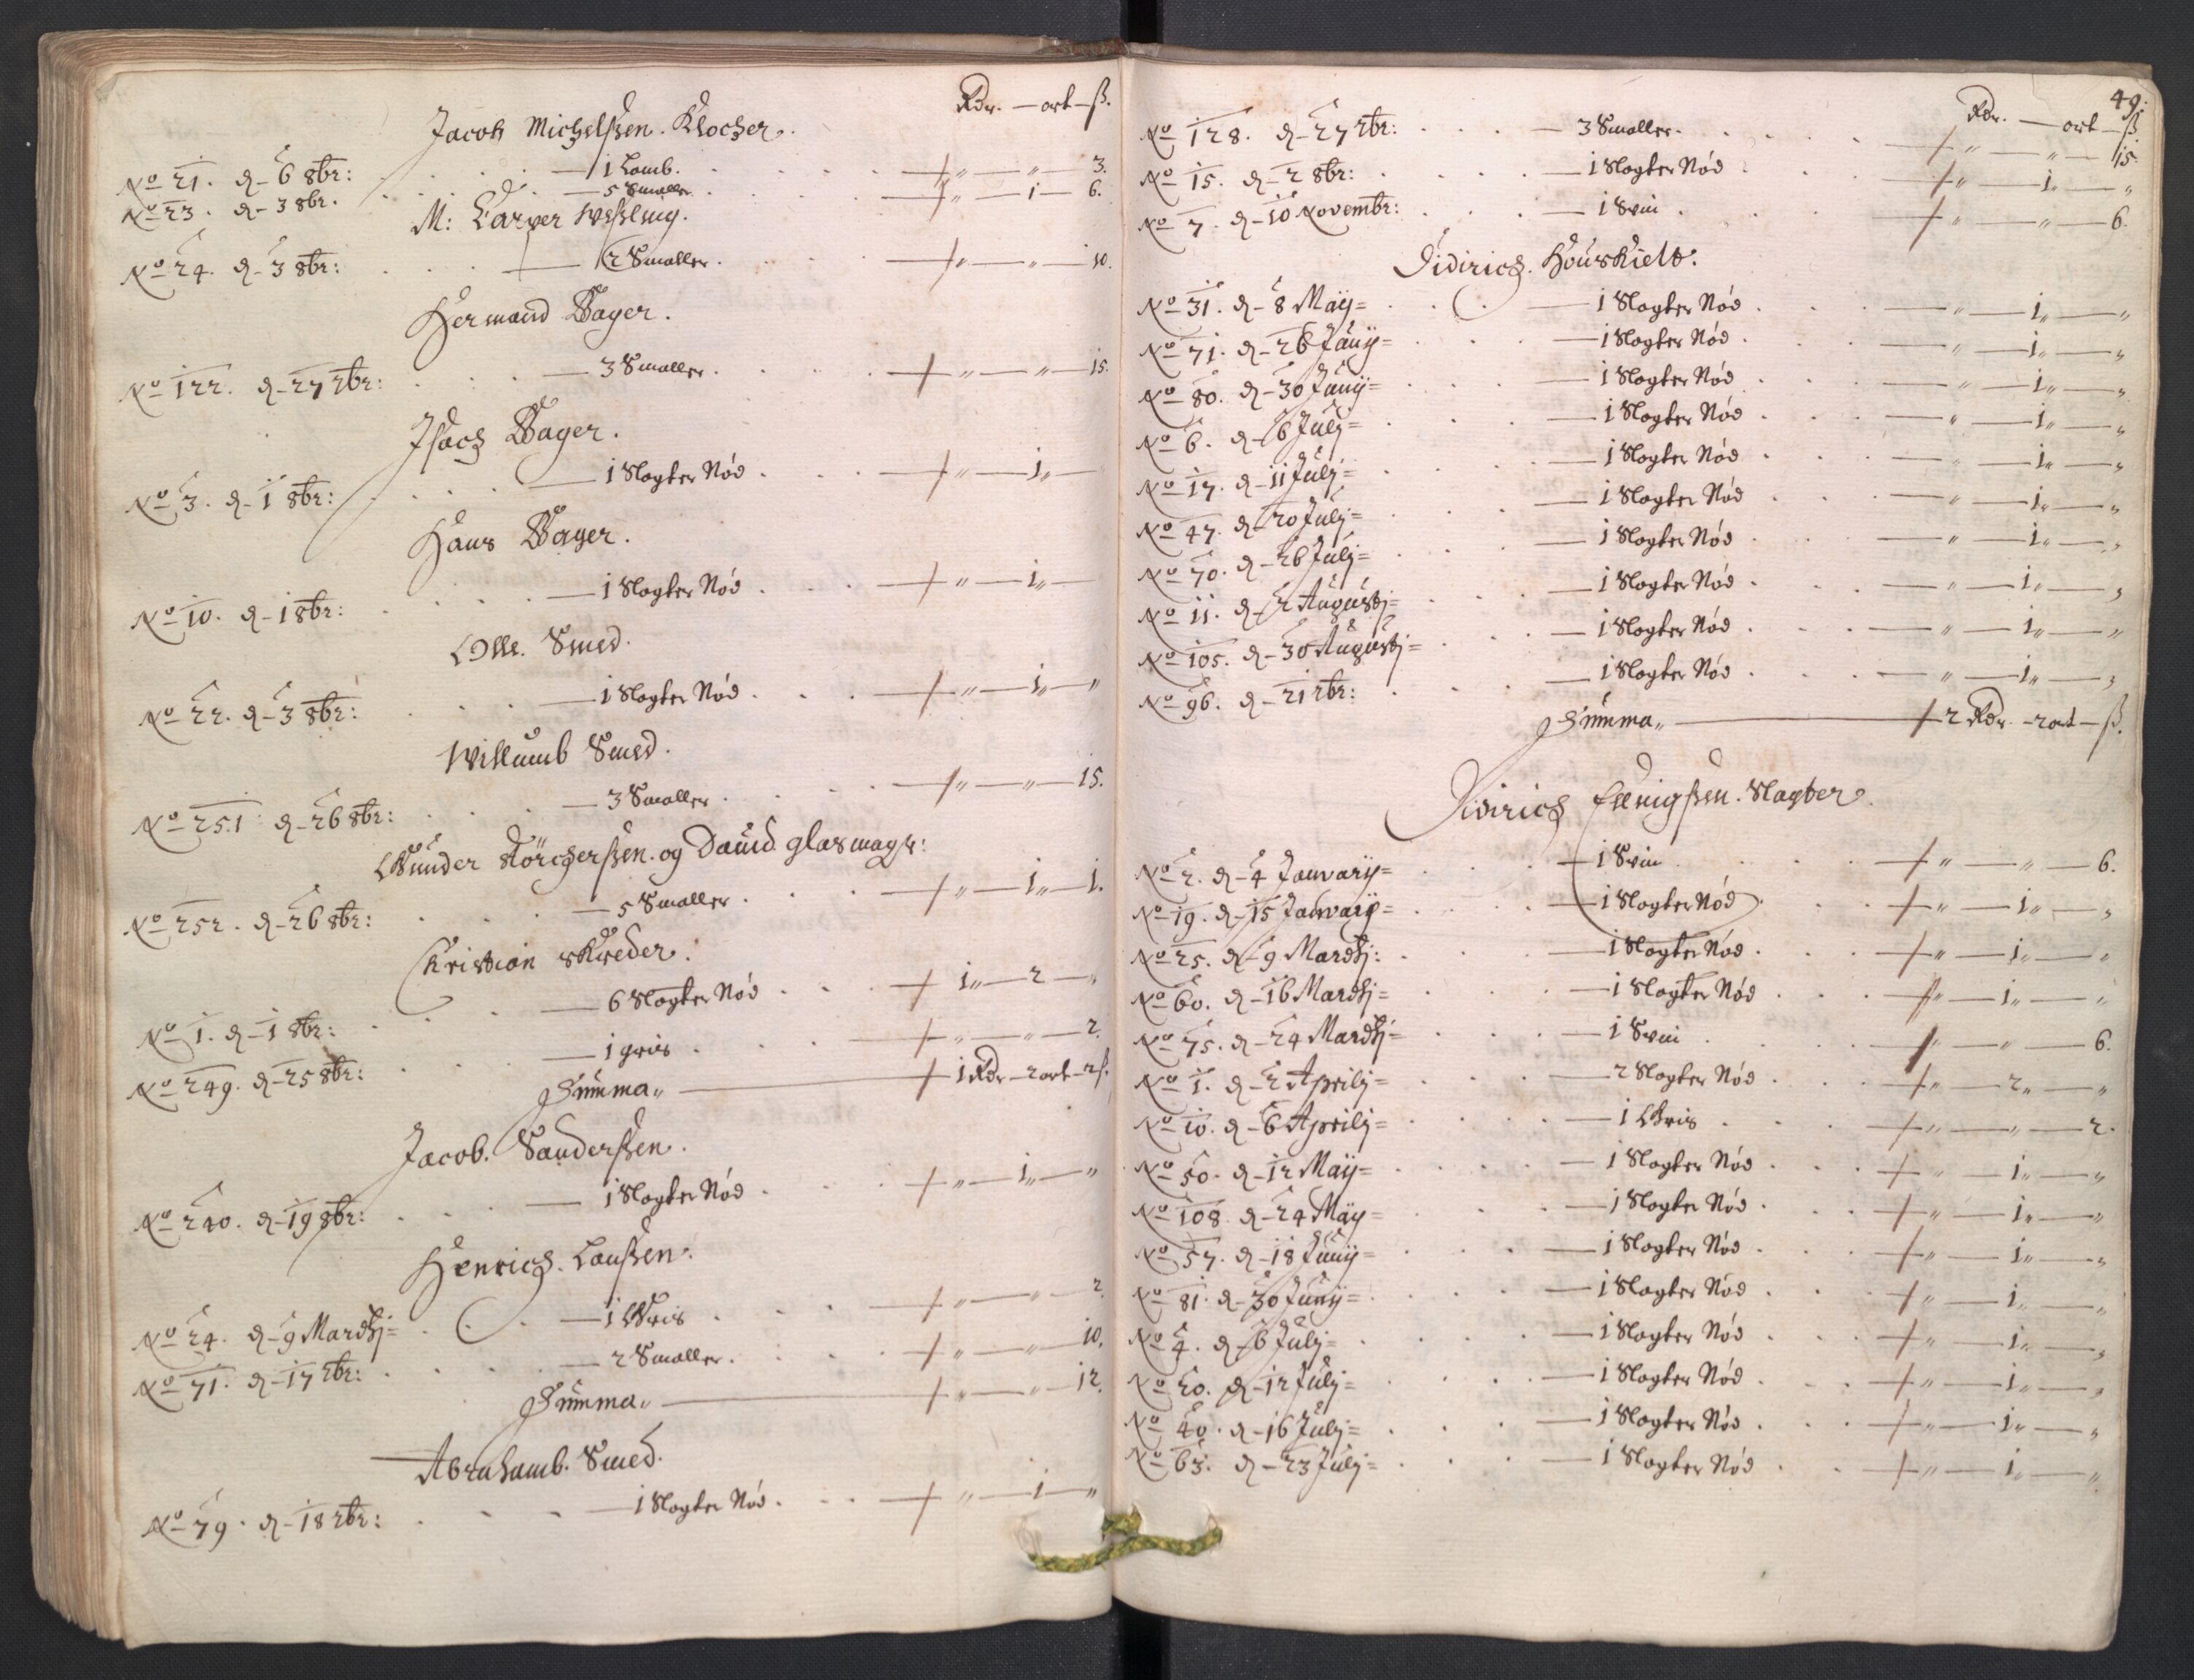 Rdr. — ort — ß.
Jacob Michelßen. Klocher.
No 21. d. 6 8br: — 1 Lamb. — " — " — 3.
No 23. d. 3 8br. — 5 Smaller — " — 1 — 6.
M: Carper Weßling.
No 24. d. 3 8br: — 2 Smaller. — " — " — 10.
Hermand Bager.
No 122. d. 27 7br: — 3 Smaller. — " — " — 15.
Isach Bager.
No 3. d. 1 8br: — 1 Slagter Nód. — " — 1 "
Hans Bager.
No 10. d. 1 8br: — 1 Slagter Nód. — " — 1 "
Olle. Smed.
No 22. d. 3 8br: — 1 Slagter Nód. — " — 1 — "
Willumb Smed.
No 251 d. 26 8br: — 3 Smaller. — " — " — 15.
Gunder Störcherßen. og David glasmagr:
No 252. d. 26 8br: — 5 Smaller. — " — 1 — 1.
Christian skreder.
No 1. d. 1 8br: — 6 Slagter Nód. — 1 — 2 — "
No 249. d. 25 8br: — 1 gris. — " — " — 2.
Summa — 1 Rdr — 2 ort — 2 ß.
Jacob. Sanderßen.
No 240. d. 19 8br: — 1 Slagter Nód. — " — 1 — "
Henrich. Lanßen.
No 24. d. 9 Martij = — 1 Gris. — " — " — 2
No 71. d. 17 7br: — 2 Smaller. — " — " — 10.
Summa — " — " — 12.
Abrahamb. Smed.
No 79. d. 18 7br: — 1 Slagter Nód. — " — 1 — "
49:
Rdr. — ort — ß
No 128. d. 27 7br: — 3 Smaller. — " — " — 15.
No 15. d. 2 8br: — 1 Slagter Nód — " — 1 — "
No 7. d. 10 Novembr: — 1 Svin. — " — " — 6.
Didirich. Houskield:
No 31. d. 8 Maÿ = — 1 Slagter Nód. — " — 1 — "
No 71. d. 26 Junÿ = — 1 Slagter Nód. — " — 1 — "
No 80. d. 30 Junÿ = — 1 Slagter Nód. — " — 1 — "
No 6. d. 6 Julj = — 1 Slagter Nód. — " — 1 — "
No 17. d. 11 Julj = — 1 Slagter Nód. — " — 1 — "
No 47. d. 20 Julj = — 1 Slagter Nód. — " — 1 — "
No 70. d. 26 Julj = — 1 Slagter Nód. — " — 1 — "
No 11. d. 2 Augustj = — 1 Slagter Nód. — " — 1 — "
No 105. d. 30 Augustj = — 1 Slagter Nód. — " — 1 — "
No 96. d. 21 7br: — 1 Slagter Nód. — " — 1 — "
Summa — 2 Rdr. — 2 ort — ß.
Didirich Ellnigßen. Slagter.
No 2. d. 4 Januarÿ = — 1 Svin. — " — " — 6.
No 19. d. 15 Januarÿ = — 1 Slagter Nód. — " — 1 — "
No 25. d. 9 Martij: — 1 Slagter Nód. — " — 1 — "
No 60. d. 16 Martij = — 1 Slagter Nód. — " — 1 — "
No 75. d. 24 Martij = — 1 Svin. — " — " — 6.
No 1. d. 2 Aprilj = — 2 Slagter Nód. — " — 2 — "
No 10. d. 6 Aprilj = — 1 Gris. — " — " — 2.
No 50. d. 12 Maÿ = — 1 Slagter Nód. — " — 1 — "
No 108. d. 24 Maÿ = — 1 Slagter Nód. — " — 1 — "
No 57. d. 18 Junÿ = — 1 Slagter Nód. — " — 1 — "
No 81. d. 30 Junÿ = — 1 Slagter Nód. — " — 1 — "
No 4. d. 6 Julj = — 1 Slagter Nód. — " — 1 — "
No 20. d. 12 Julj = — 1 Slagter Nód. — " — 1 — "
No 40. d. 16 Julj = — 1 Slagter Nód. — " — 1 — "
No 63. d. 23 Julj = — 1 Slagter Nód. — " — 1 — "